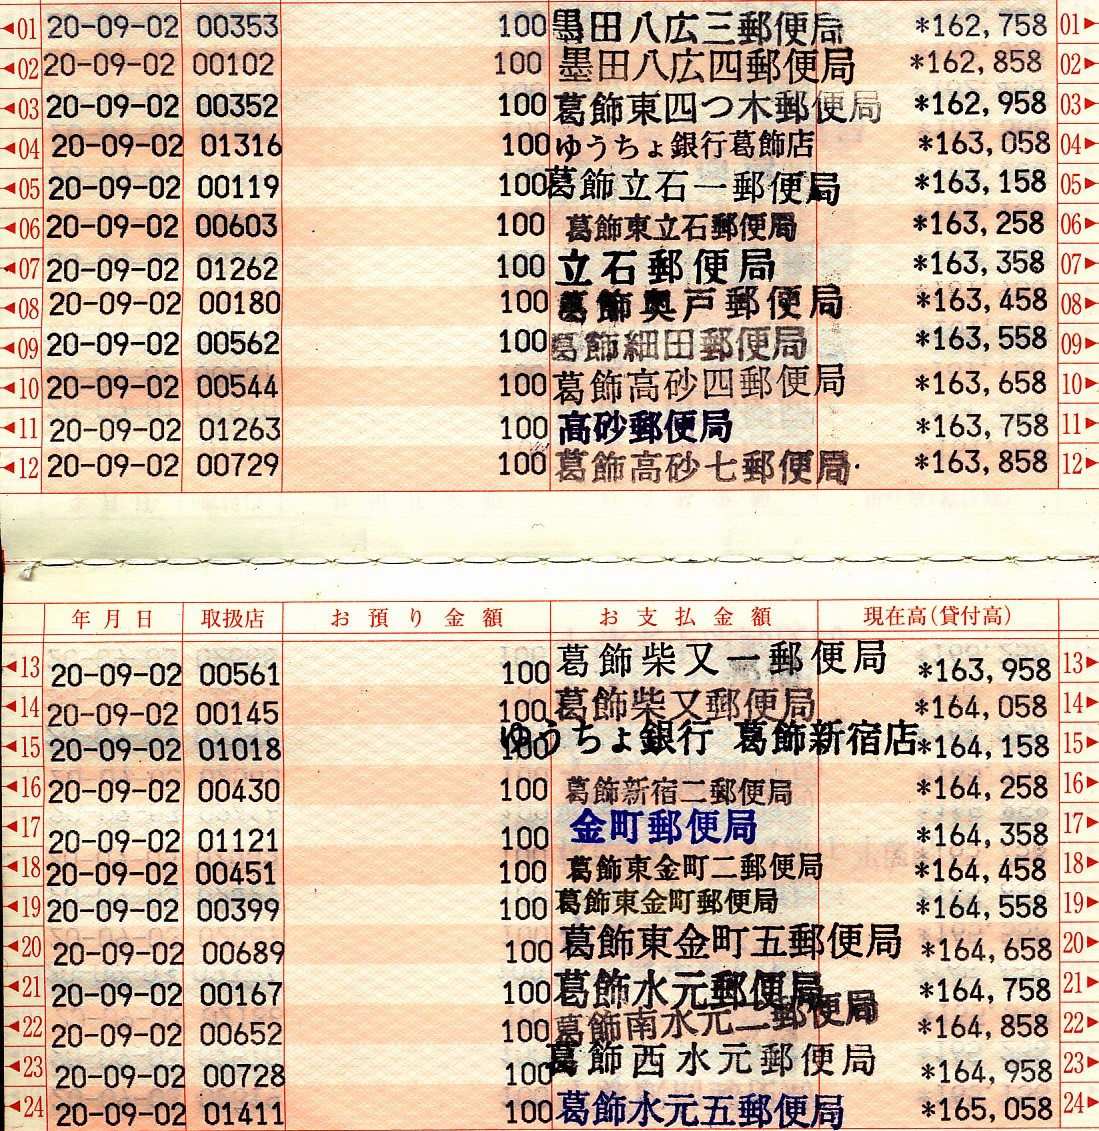 ◀01 20-09-02 00353 100 墨田八広三郵便局 *162,758 01▶
◀02 20-09-02 00102 100 墨田八広四郵便局 *162,858 02▶
◀03 20-09-02 00352 100 葛飾東四つ木郵便局 *162,958 03▶
◀04 20-09-02 01316 100 ゆうちょ銀行葛飾店 *163,058 04▶
◀05 20-09-02 00119 100 葛飾立石一郵便局 *163,158 05▶
◀06 20-09-02 00603 100 葛飾東立石郵便局 *163,258 06▶
◀07 20-09-02 01262 100 立石郵便局 *163,358 07▶
◀08 20-09-02 00180 100 葛飾奥戸郵便局 *163,458 08▶
◀09 20-09-02 00562 100 葛飾細田郵便局 *163,558 09▶
◀10 20-09-02 00544 100 葛飾高砂四郵便局 *163,658 10▶
◀11 20-09-02 01263 100 高砂郵便局 *163,758 11▶
◀12 20-09-02 00729 100 葛飾高砂七郵便局 *163,858 12▶
年月日 取扱店 お預り金額 お支払金額 現在高(貸付高)
◀13 20-09-02 00561 100 葛飾柴又一郵便局 *163,958 13▶
◀14 20-09-02 00145 100 葛飾柴又郵便局 *164,058 14▶
◀15 20-09-02 01018 100 ゆうちょ銀行 葛飾新宿店 *164,158 15▶
◀16 20-09-02 00430 100 葛飾新宿二郵便局 *164,258 16▶
◀17 20-09-02 01121 100 金町郵便局 *164,358 17▶
◀18 20-09-02 00451 100 葛飾東金町二郵便局 *164,458 18▶
◀19 20-09-02 00399 100 葛飾東金町郵便局 *164,558 19▶
◀20 20-09-02 00689 100 葛飾東金町五郵便局 *164,658 20▶
◀21 20-09-02 00167 100 葛飾水元郵便局 *164,758 21▶
◀22 20-09-02 00652 100 葛飾南水元二郵便局 *164,858 22▶
◀23 20-09-02 00728 100 葛飾西水元郵便局 *164,958 23▶
◀24 20-09-02 01411 100 葛飾水元五郵便局 *165,058 24▶